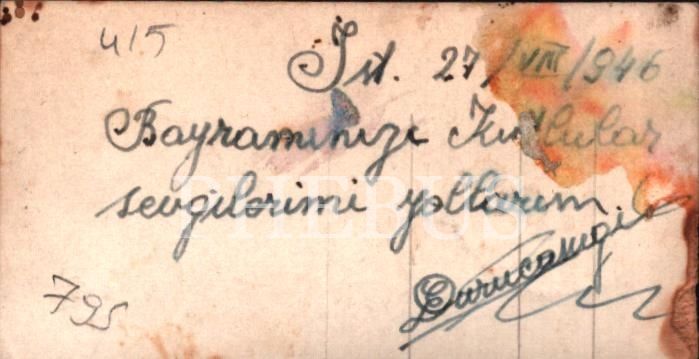 415
İst. 27/VIII/946
Bayramınızı Kutlular
sevgilerimi yollarım.
PHEBUS
795